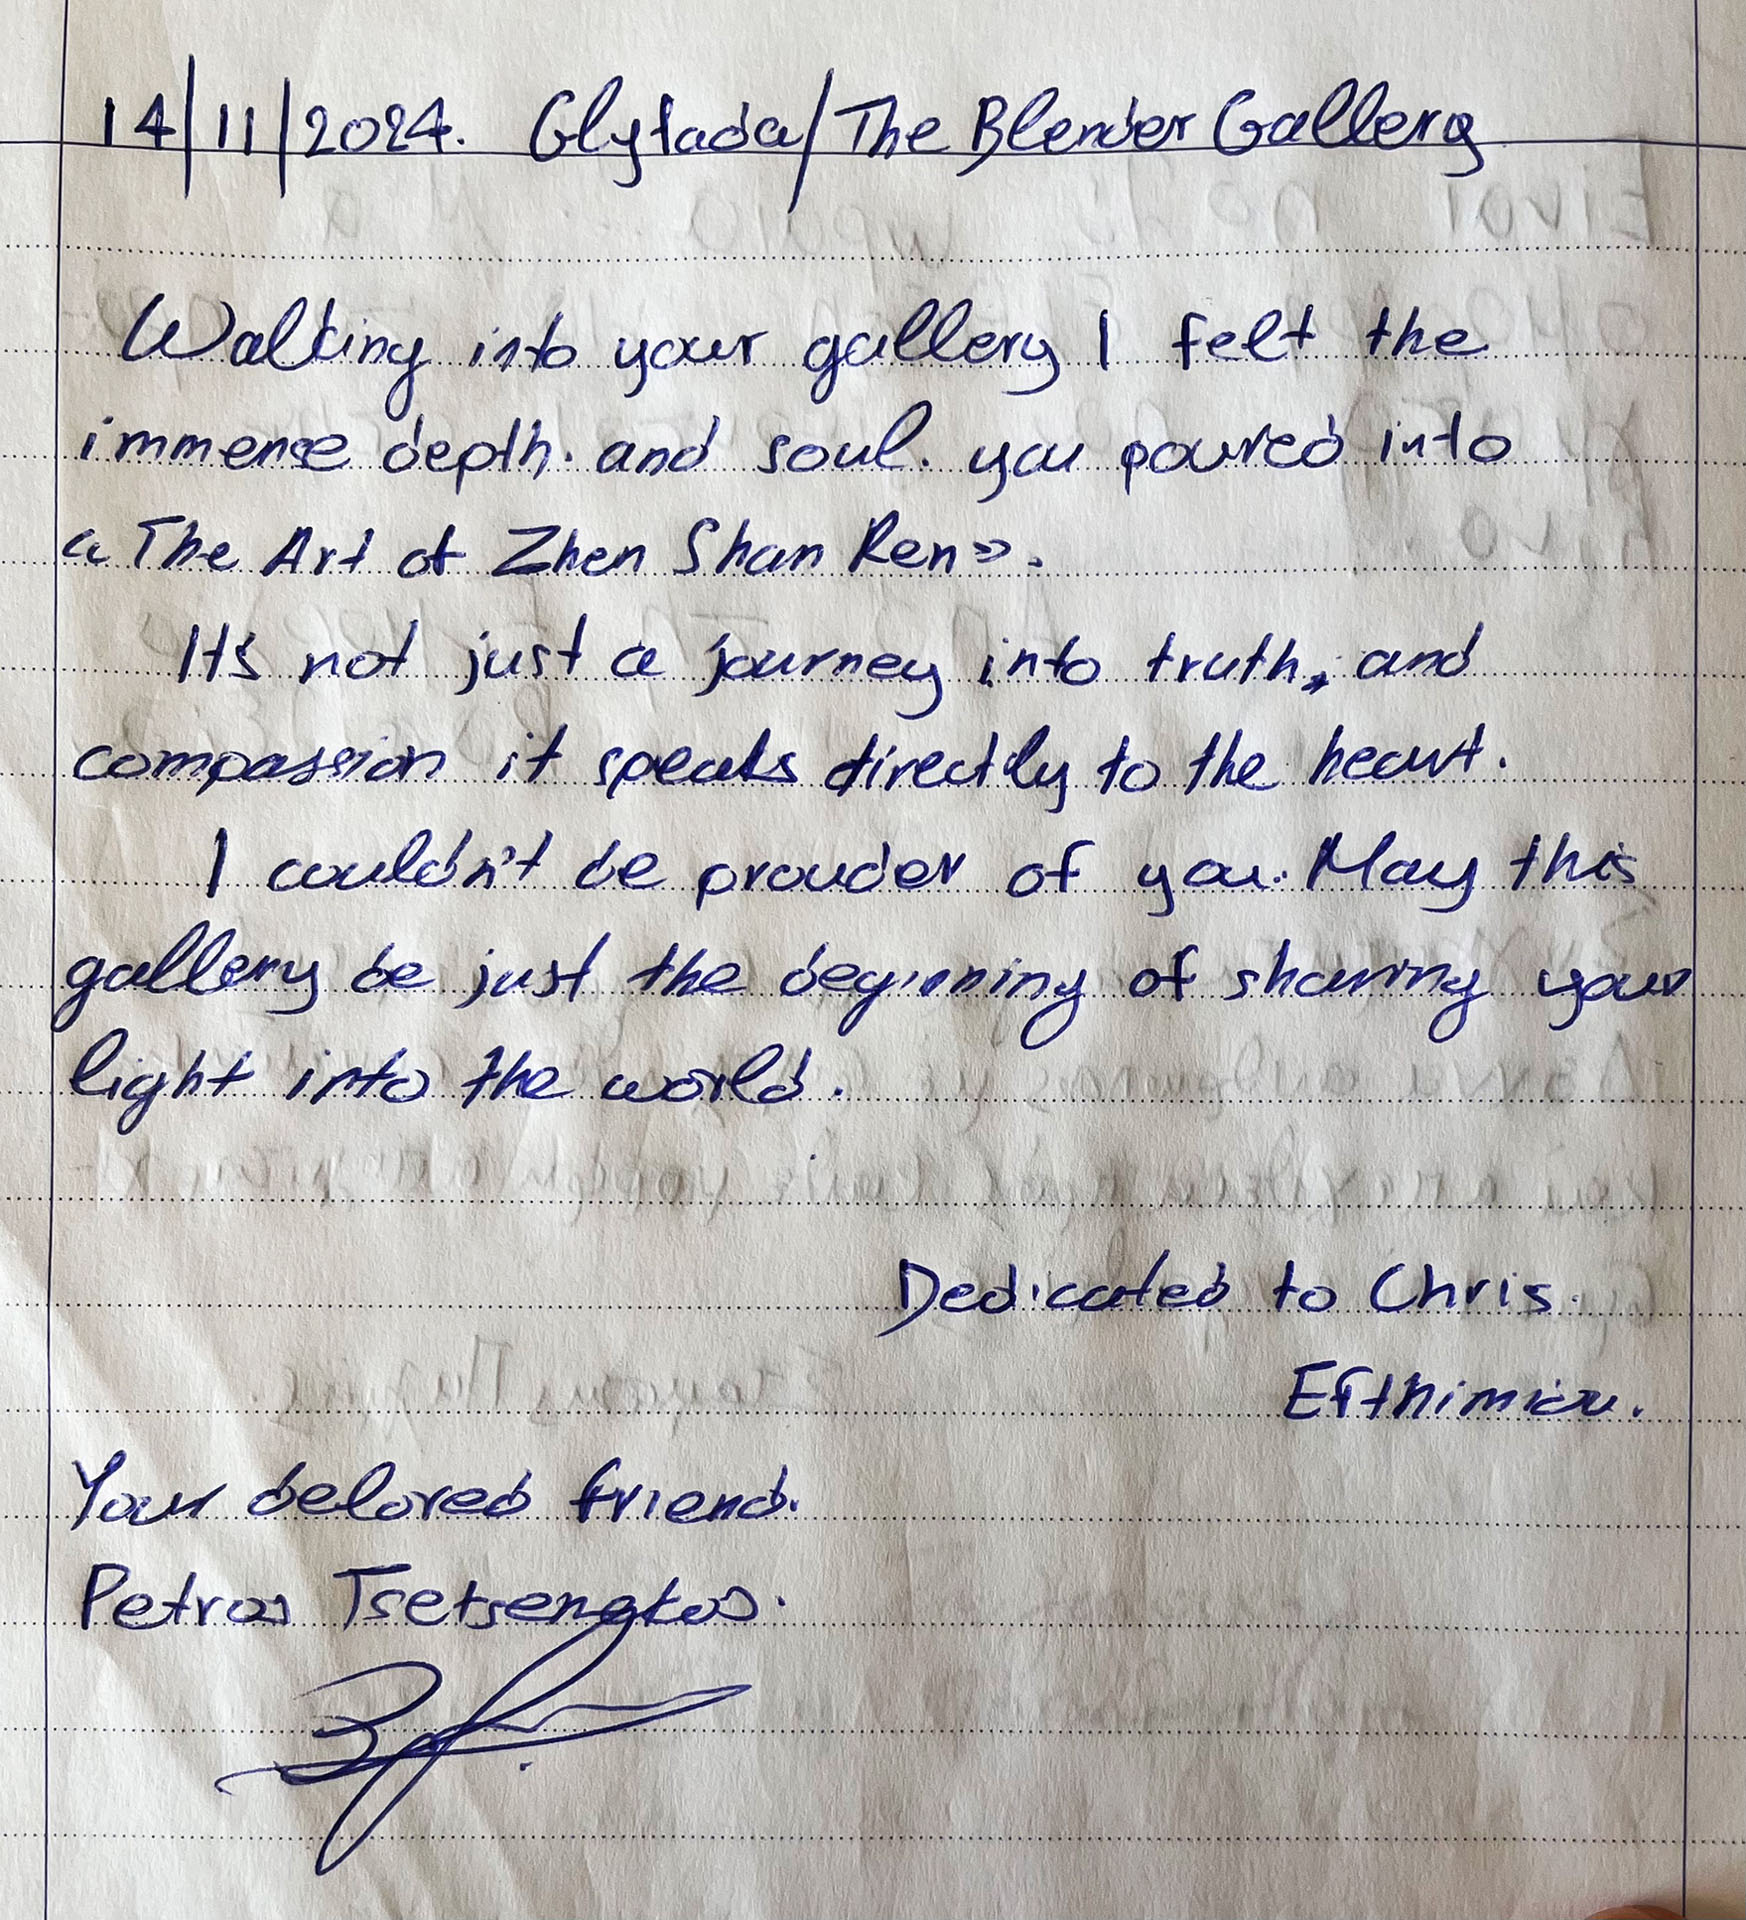 14/11/2024. Glyfada/The Blender Gallery
Walking into your gallery I felt the
immense depth. and soul. you poured into
« The Art of Zhen Shan Ren».
Its not just a journey into truth, and
compassion it speaks directly to the heart.
I couldn't be prouder of you. May this
gallery be just the beginning of sharing your
light into the world.
Dedicated to Chris.
Efthimiou.
Your beloved friend.
Petros Tsetsengkos.